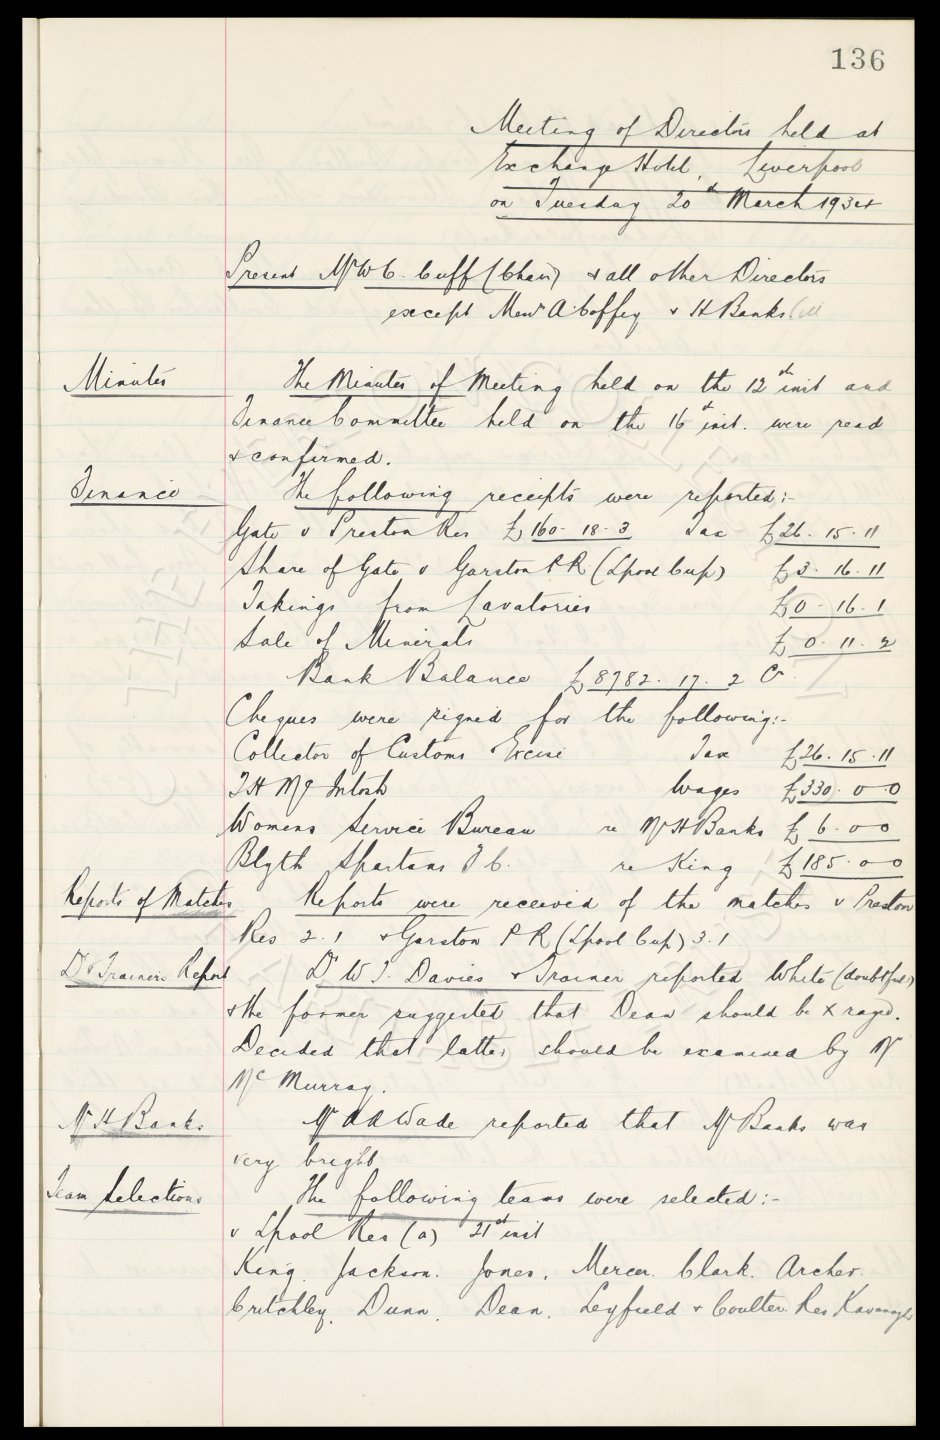 136
Meeting of Directors held at
Exchange Hotel, Liverpool
on Tuesday 20th March 1934
Present Mr W C. Cuff (Chair) & all other Directors
except Messrs A Coffey & H Banks (ill
Minutes The Minutes of Meeting held on the 12th inst and
Finance Committee held on the 16th inst. were read
& confirmed.
Finance The following receipts were reported:-
Gate v Preston Res £160-18-3 Tax £26-15-11
Share of Gate v Garston P R (Lpool Cup) £3-16-11
Takings from Lavatories £0-16-1
Sale of Minerals £0-11-2
Bank Balance £8782-17-2 Cr
Cheques were signed for the following:-
Collector of Customs Excise Tax £26-15-11
T H McIntosh Wages £330-0-0
Womens Service Bureau re Mr H Banks £6-0-0
Blyth Spartans F C. re King £185-0-0
Reports of Matches Reports were received of the matches v Preston
Res 2.1 & Garston P R (Lpool Cup) 3.1
Dr & Trainers Report Dr W T. Davies & Trainer reported White (doubtful)
& the former suggested that Dean should be X rayed.
Decided that latter should be examined by Mr
McMurray.
Mr H Banks Mr A R Wade reported that Mr Banks was
very bright
Team Selections The following teams were selected:-
v Lpool Res (a) 21st inst
King. Jackson. Jones. Mercer. Clark. Archer.
Critchley. Dunn. Dean. Leyfield & Coulter. Res Kavanagh